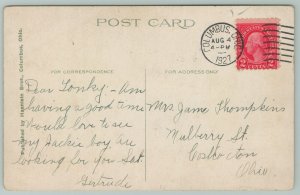 POST CARD
COLUMBUS, OHIO
AUG 4
4-PM
1927
2 CENTS 2
FOR CORRESPONDENCE
FOR ADDRESS ONLY
Published by Magazele Bros., Columbus, Ohio.
Dear Tonky:- Am
having a good time
Would love to see
my Jackie boy am
looking for you Sat
Gertrude
Mrs Jame Thompkins
Mulberry St.
Coshocton
Ohio